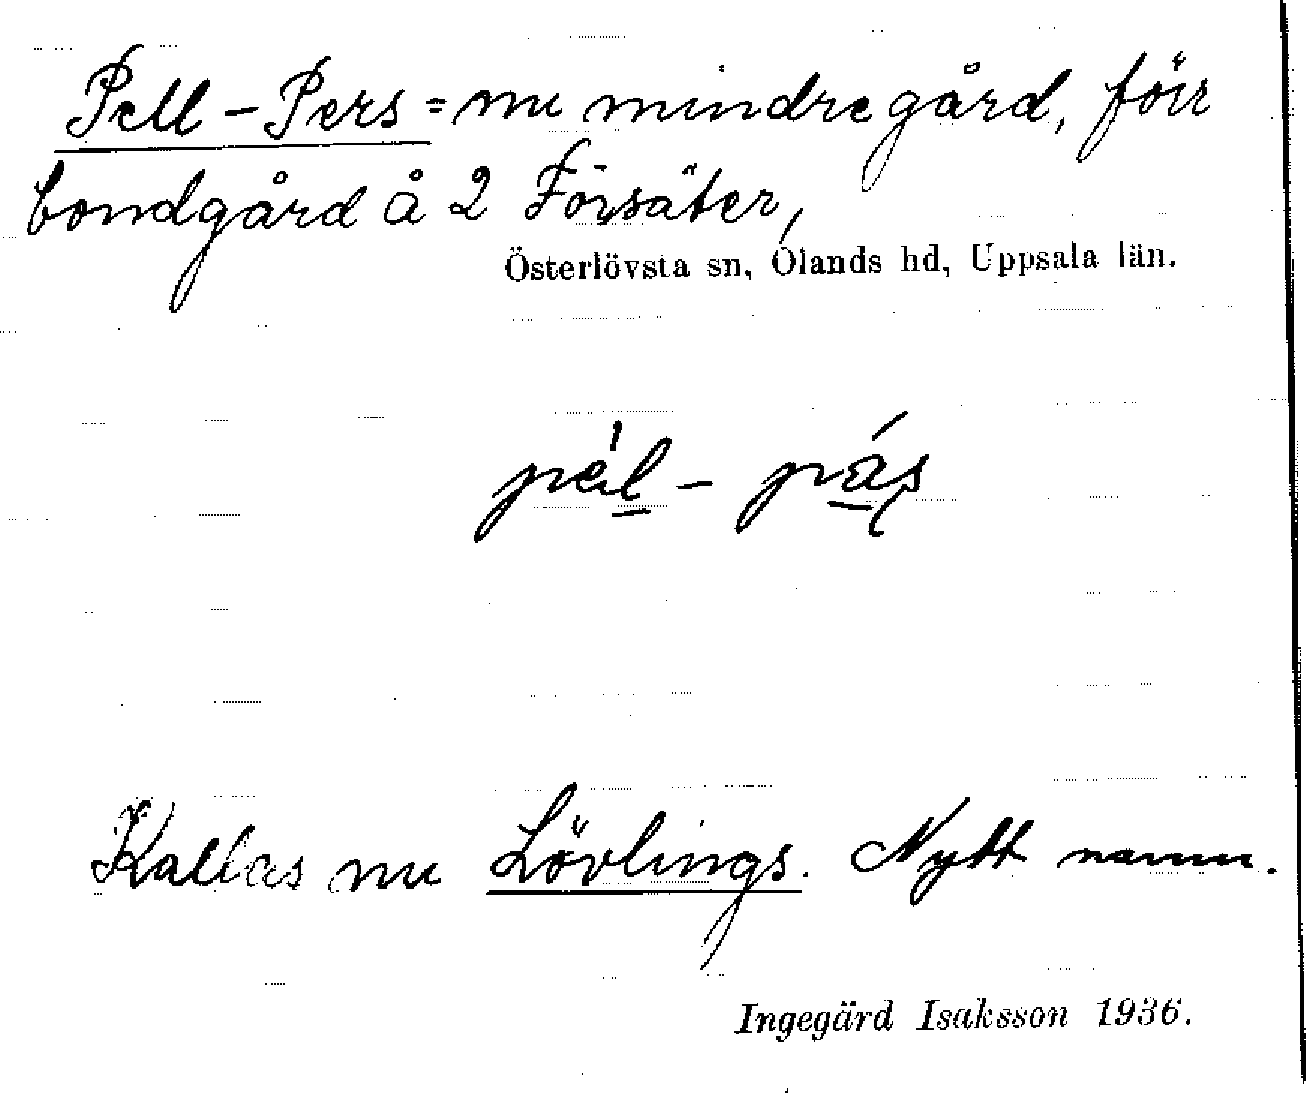 Pell-Pers = nu mindre gård, förr
bondgård å 2 Försäter,
Österlövsta sn, Olands hd, Uppsala län.
pèl - pás
Kallas nu Lövlings. Nytt namn.
Ingegärd Isaksson 1936.